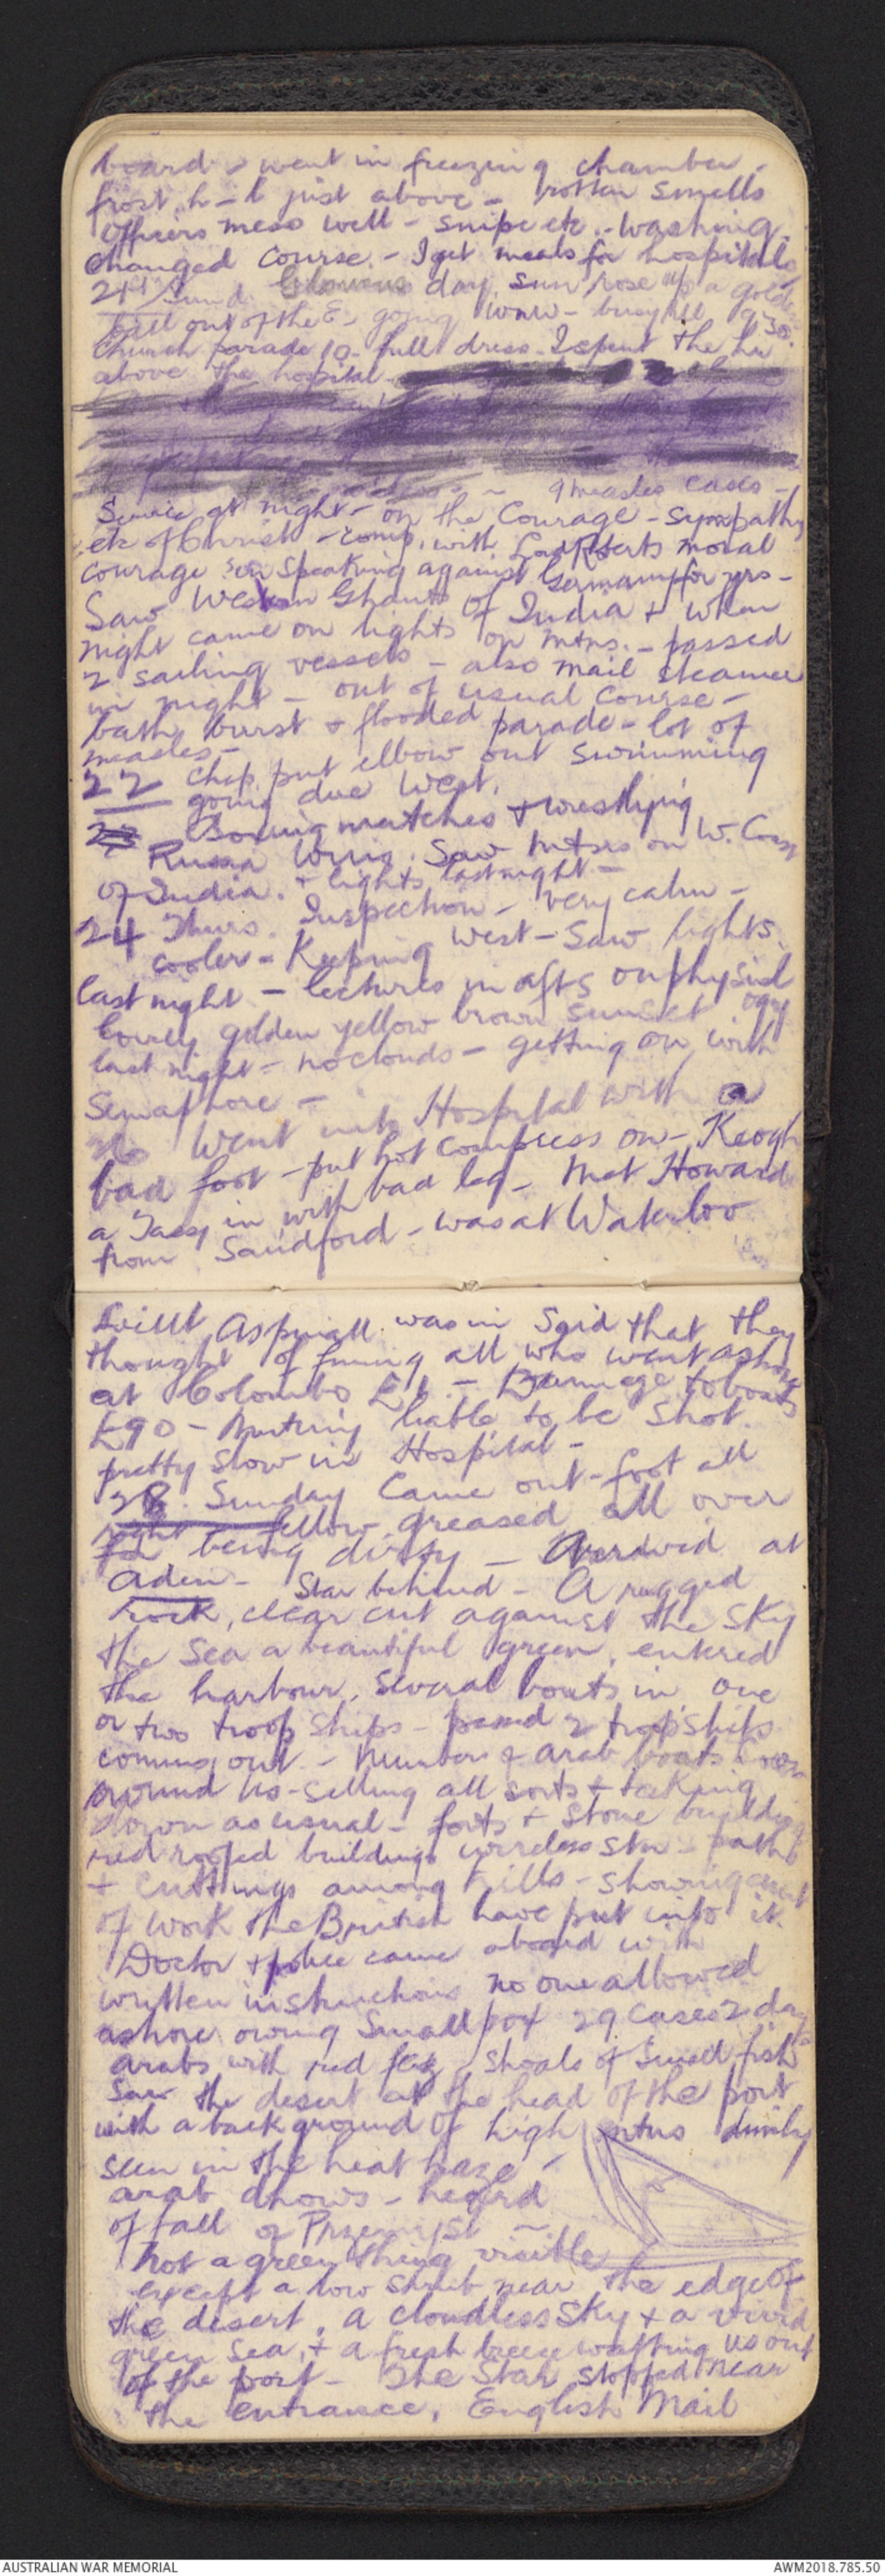 board - went in freezing chamber -
frost, h-t just above - rotten smells
Officers mess well - snipe etc. - washing.
Changed course. - I get meals for hospitals
21st Sund. Glorious day, sun rose up a gold
ball out of the E - going WNW - busy till 9.30.
Church parade 10 - full dress - I spent the hr
above the hospital
9 measles cases -
Service at night - on the Courage - sympathy
etc of Christ - comp. with Lord Roberts moral
courage in speaking against Germany for yrs -
Saw Western Ghauts of India & when
night came on lights on mtns. - passed
2 sailing vessels - also mail steamer
in night - out of usual course -
bath burst & flooded parade - lot of
measles -
22 Chap put elbow out swimming
going due West.
23 Boxing matches & wrestling
Russia Saw mtns on W. Coast
of India. & lights last night -
24 Thurs. Inspection - very calm -
cooler - Keeping West - Saw lights
last night - lectures in afts on physiol
ogy
lovely golden yellow brown sunset
last night - no clouds - getting on with
Semaphore -
Went into Hospital with a
bad foot - put hot compress on - Keogh
a Tassy in with bad leg - met Howard
from Sandford - was at Waterloo
Lieut Aspinall was in Said that they
thought of fining all who went ashore
at Colombo £1 - Damage to boats
£90 - Mutiny liable to be shot.
pretty slow in Hospital -
28. Sunday Came out - foot all
right fellow greased all over
for being dirty - Arrived at
Aden - Star behind - A rugged
rock, clear cut against the sky
the sea a beautiful green, entered
the harbour, several boats in one
or two troop ships - passed 2 troopships
coming out - Numbers of arab boats
around us - selling all sorts & taking
down as usual - forts & stone buildings
red roofed buildings wireless stn - paths
& cuttings among hills - showing amt
of work the British have put into it.
Doctor & police came aboard with
written instructions no one allowed
ashore owing Small pox 29 cases 2 day
arabs with red fez - Shoals of small fish
Saw the desert at the head of the port
with a background of high mtns dimly
seen in the heat haze -
arab dhows - heard
of fall of Przemysl -
Not a green thing visible
except a low shrub near the edge of
the desert, a cloudless sky & a vivid
green sea, & a fresh breeze wafting us out
of the port - The Star stopped near
the entrance, English Mail
AUSTRALIAN WAR MEMORIAL
AWM2018.785.50